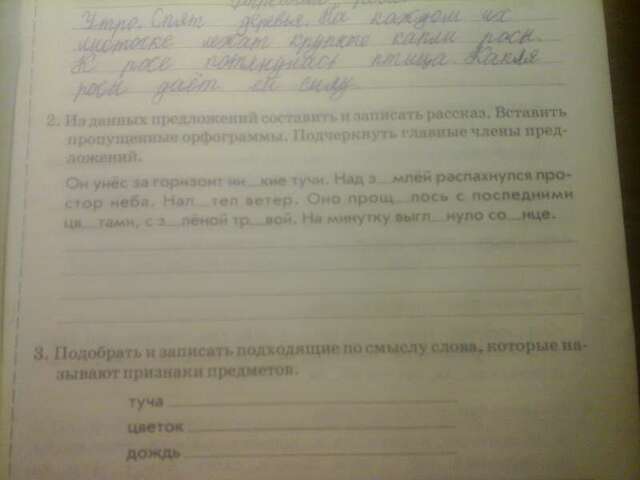 Утро. Спят деревья. На каждом их
листочке лежат крупные капли росы.
К росе потянулась птица. Капля
росы даёт ей силу.
2. Из данных предложений составить и записать рассказ. Вставить
пропущенные орфограммы. Подчеркнуть главные члены пред-
ложений.
Он унёс за горизонт ни__кие тучи. Над з__млёй распахнулся про-
стор неба. Нал__тел ветер. Оно прощ__лось с последними
цв__тами, с з__лёной тр__вой. На минутку выгл__нуло со__нце.
3. Подобрать и записать подходящие по смыслу слова, которые на-
зывают признаки предметов.
туча
цветок
дождь